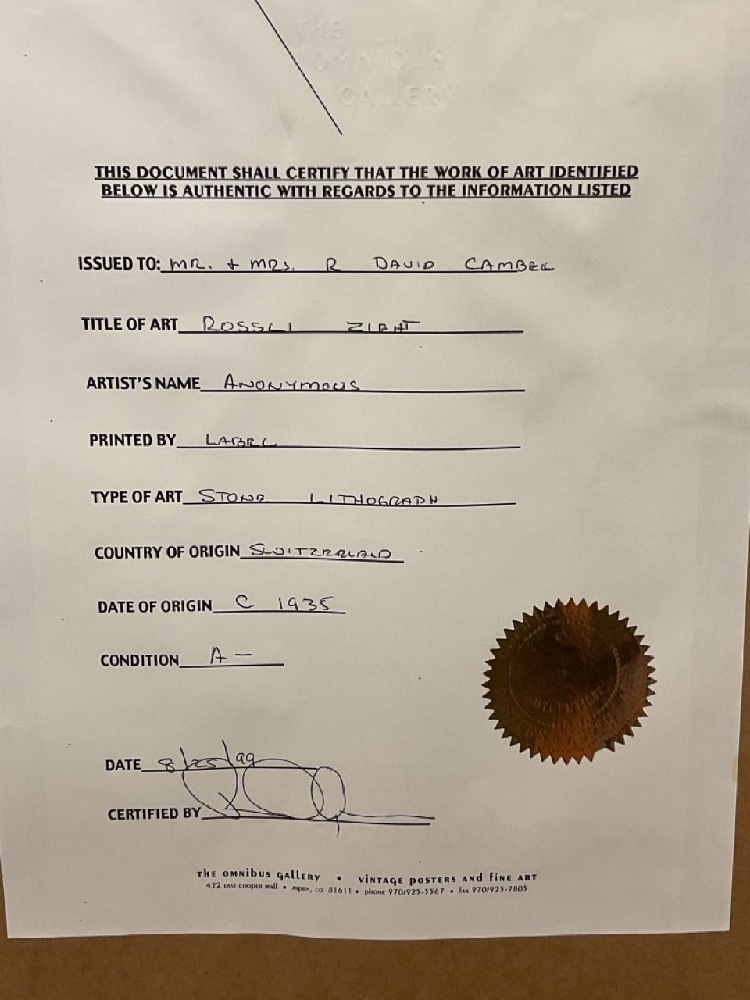 THE
OMNIBUS
GALLERY
THIS DOCUMENT SHALL CERTIFY THAT THE WORK OF ART IDENTIFIED
BELOW IS AUTHENTIC WITH REGARDS TO THE INFORMATION LISTED
ISSUED TO: MR. + MRS. R DAVID
TITLE OF ART
ARTIST'S NAME ANONYMOUS
PRINTED BY
TYPE OF ART STONE LITHOGRAPH
COUNTRY OF ORIGIN SWITZERLAND
DATE OF ORIGIN C 1935
CONDITION A-
DATE 8/25/99
CERTIFIED BY
THE OMNIBUS GALLERY • VINTAGE POSTERS AND FINE ART
422 EAST COOPER MALL • ASPEN, CO 81611 • PHONE 970/925-5567 • FAX 970/925-7805